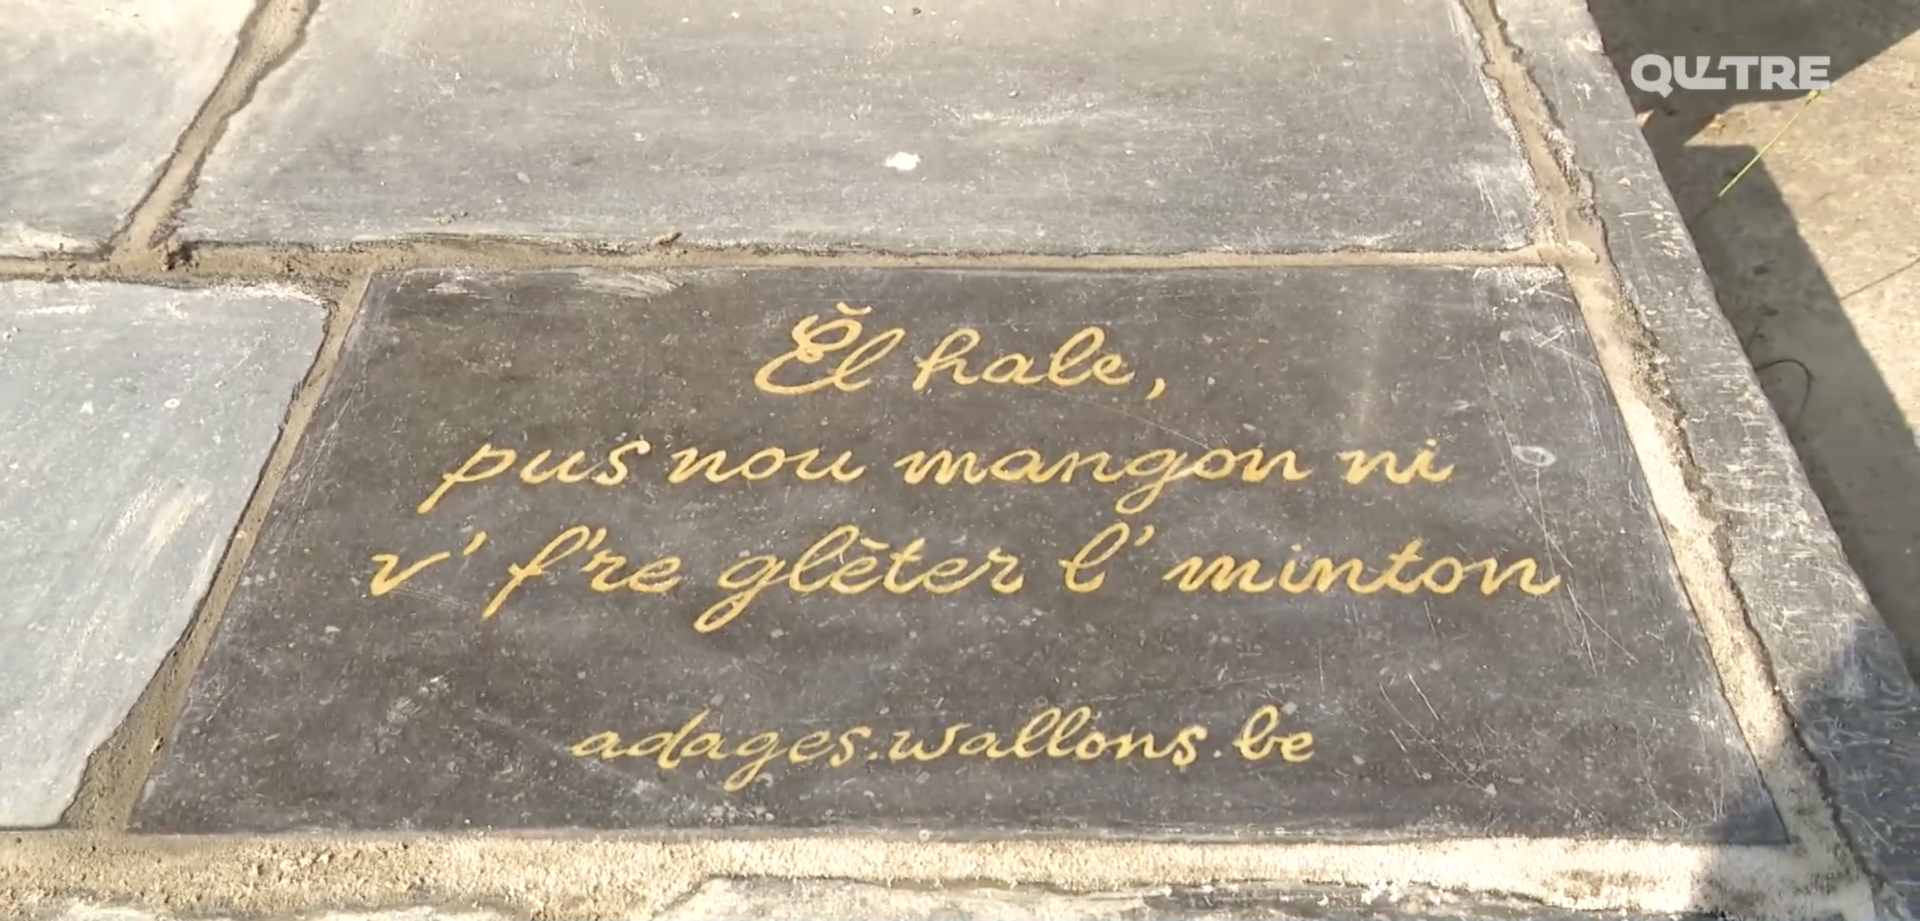 QUATRE
Ĕl hale,
pus nou mangon ni
v' f're glèter l' minton
adages.wallons.be